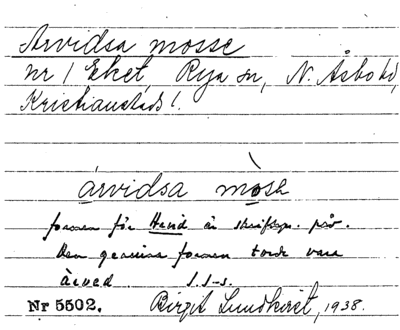 Arvidsa mosse
nr 1 Eket, Rya sn, N. Åsbo hd,
Kristianstads l.
árvidsa mòsɛ
formen för Havid är skriftspr. påv.
Den genuina formen torde vara
àrved S.I-s.
Nr 5502. Birgit Lundkvist, 1938.